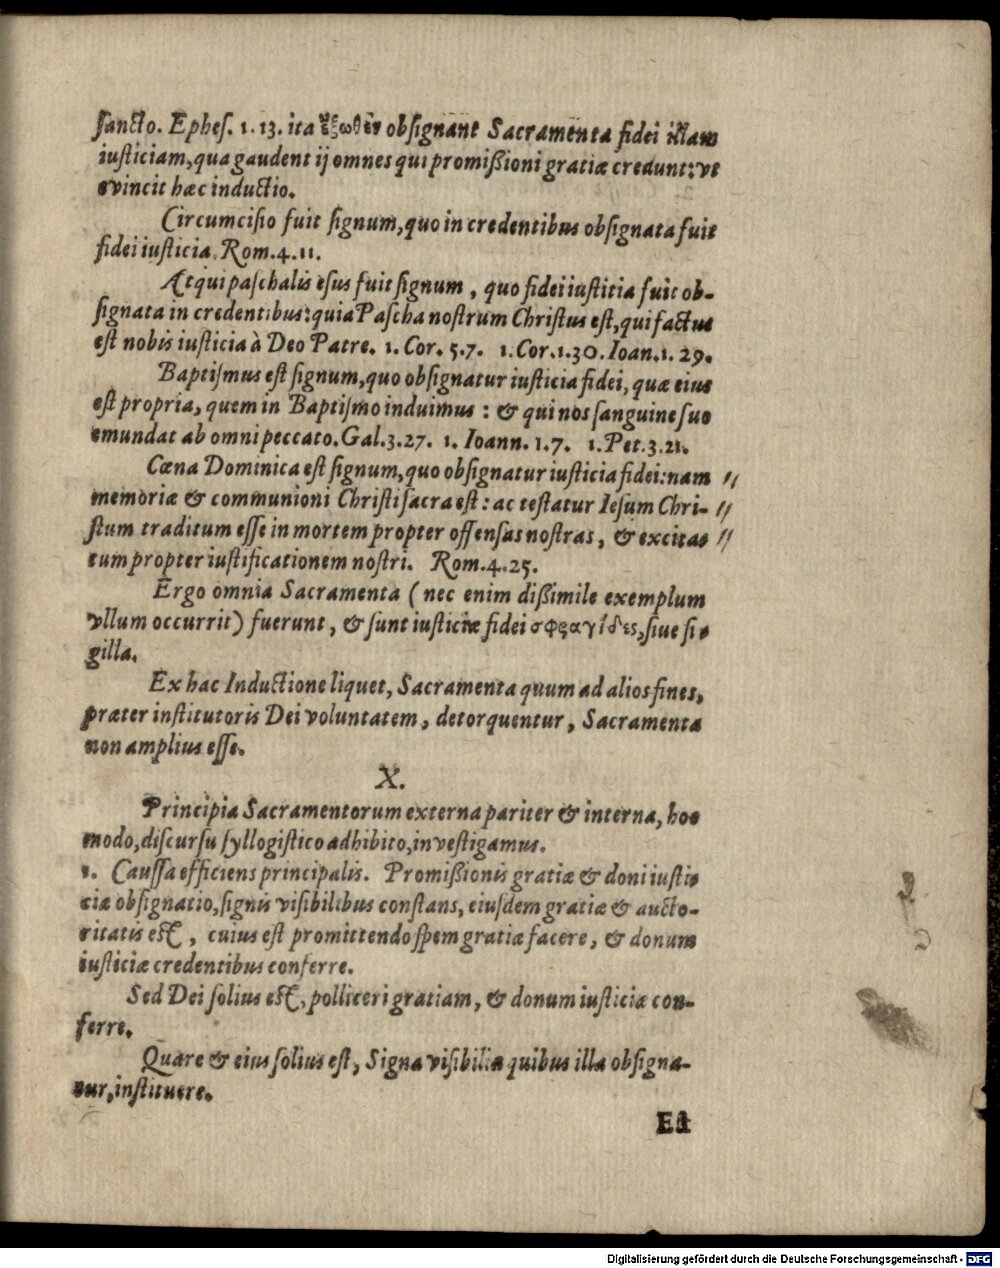 ſancto. Epheſ. 1. 13. ita ἔξωθεν obſignant Sacramenta fidei illam
iuſticiam, qua gaudent ij omnes qui promißioni gratiæ credunt: vt
evincit hæc inductio.
Circumciſio fuit ſignum, quo in credentibus obſignata fuit
fidei iuſticia. Rom. 4. 11.
Atqui paſchalis eſus fuit ſignum, quo fidei iuſtitia fuit ob-
ſignata in credentibus: quia Paſcha noſtrum Chriſtus eſt, qui factus
eſt nobis iuſticia à Deo Patre. 1. Cor. 5. 7. 1. Cor. 1. 30. Ioan. 1. 29.
Baptiſmus eſt ſignum, quo obſignatur iuſticia fidei, quæ eius
eſt propria, quem in Baptiſmo induimus: & qui nos ſanguine ſuo
emundat ab omni peccato. Gal. 3. 27. 1. Ioann. 1. 7. 1. Pet. 3. 21.
Cœna Dominica eſt ſignum, quo obſignatur iuſticia fidei: nam
memoriæ & communioni Chriſti ſacra eſt: ac teſtatur Ieſum Chri-
ſtum traditum eſſe in mortem propter offenſas noſtras, & excita-
tum propter iuſtificationem noſtri. Rom. 4. 25.
Ergo omnia Sacramenta (nec enim dißimile exemplum
vllum occurrit) fuerunt, & ſunt iuſticiæ fidei σφραγίδες, ſiue ſi-
gilla.
Ex hac Inductione liquet, Sacramenta quum ad alios fines,
præter inſtitutoris Dei voluntatem, detorquentur, Sacramenta
non amplius eſſe.
X.
Principia Sacramentorum externa pariter & interna, hoc
modo, diſcurſu ſyllogiſtico adhibito, inveſtigamus.
1. Cauſſa efficiens principalis. Promißionis gratiæ & doni iuſti-
ciæ obſignatio, ſignis viſibilibus conſtans, eiuſdem gratiæ & aucto-
ritatis eſt, cuius eſt promittendo ſpem gratiæ facere, & donum
iuſticiæ credentibus conferre.
Sed Dei ſolius eſt, polliceri gratiam, & donum iuſticiæ con-
ferre.
Quare & eius ſolius eſt, Signa viſibilia quibus illa obſigna-
tur, inſtituere.
Et
Digitalisierung gefördert durch die Deutsche Forschungsgemeinschaft - DFG